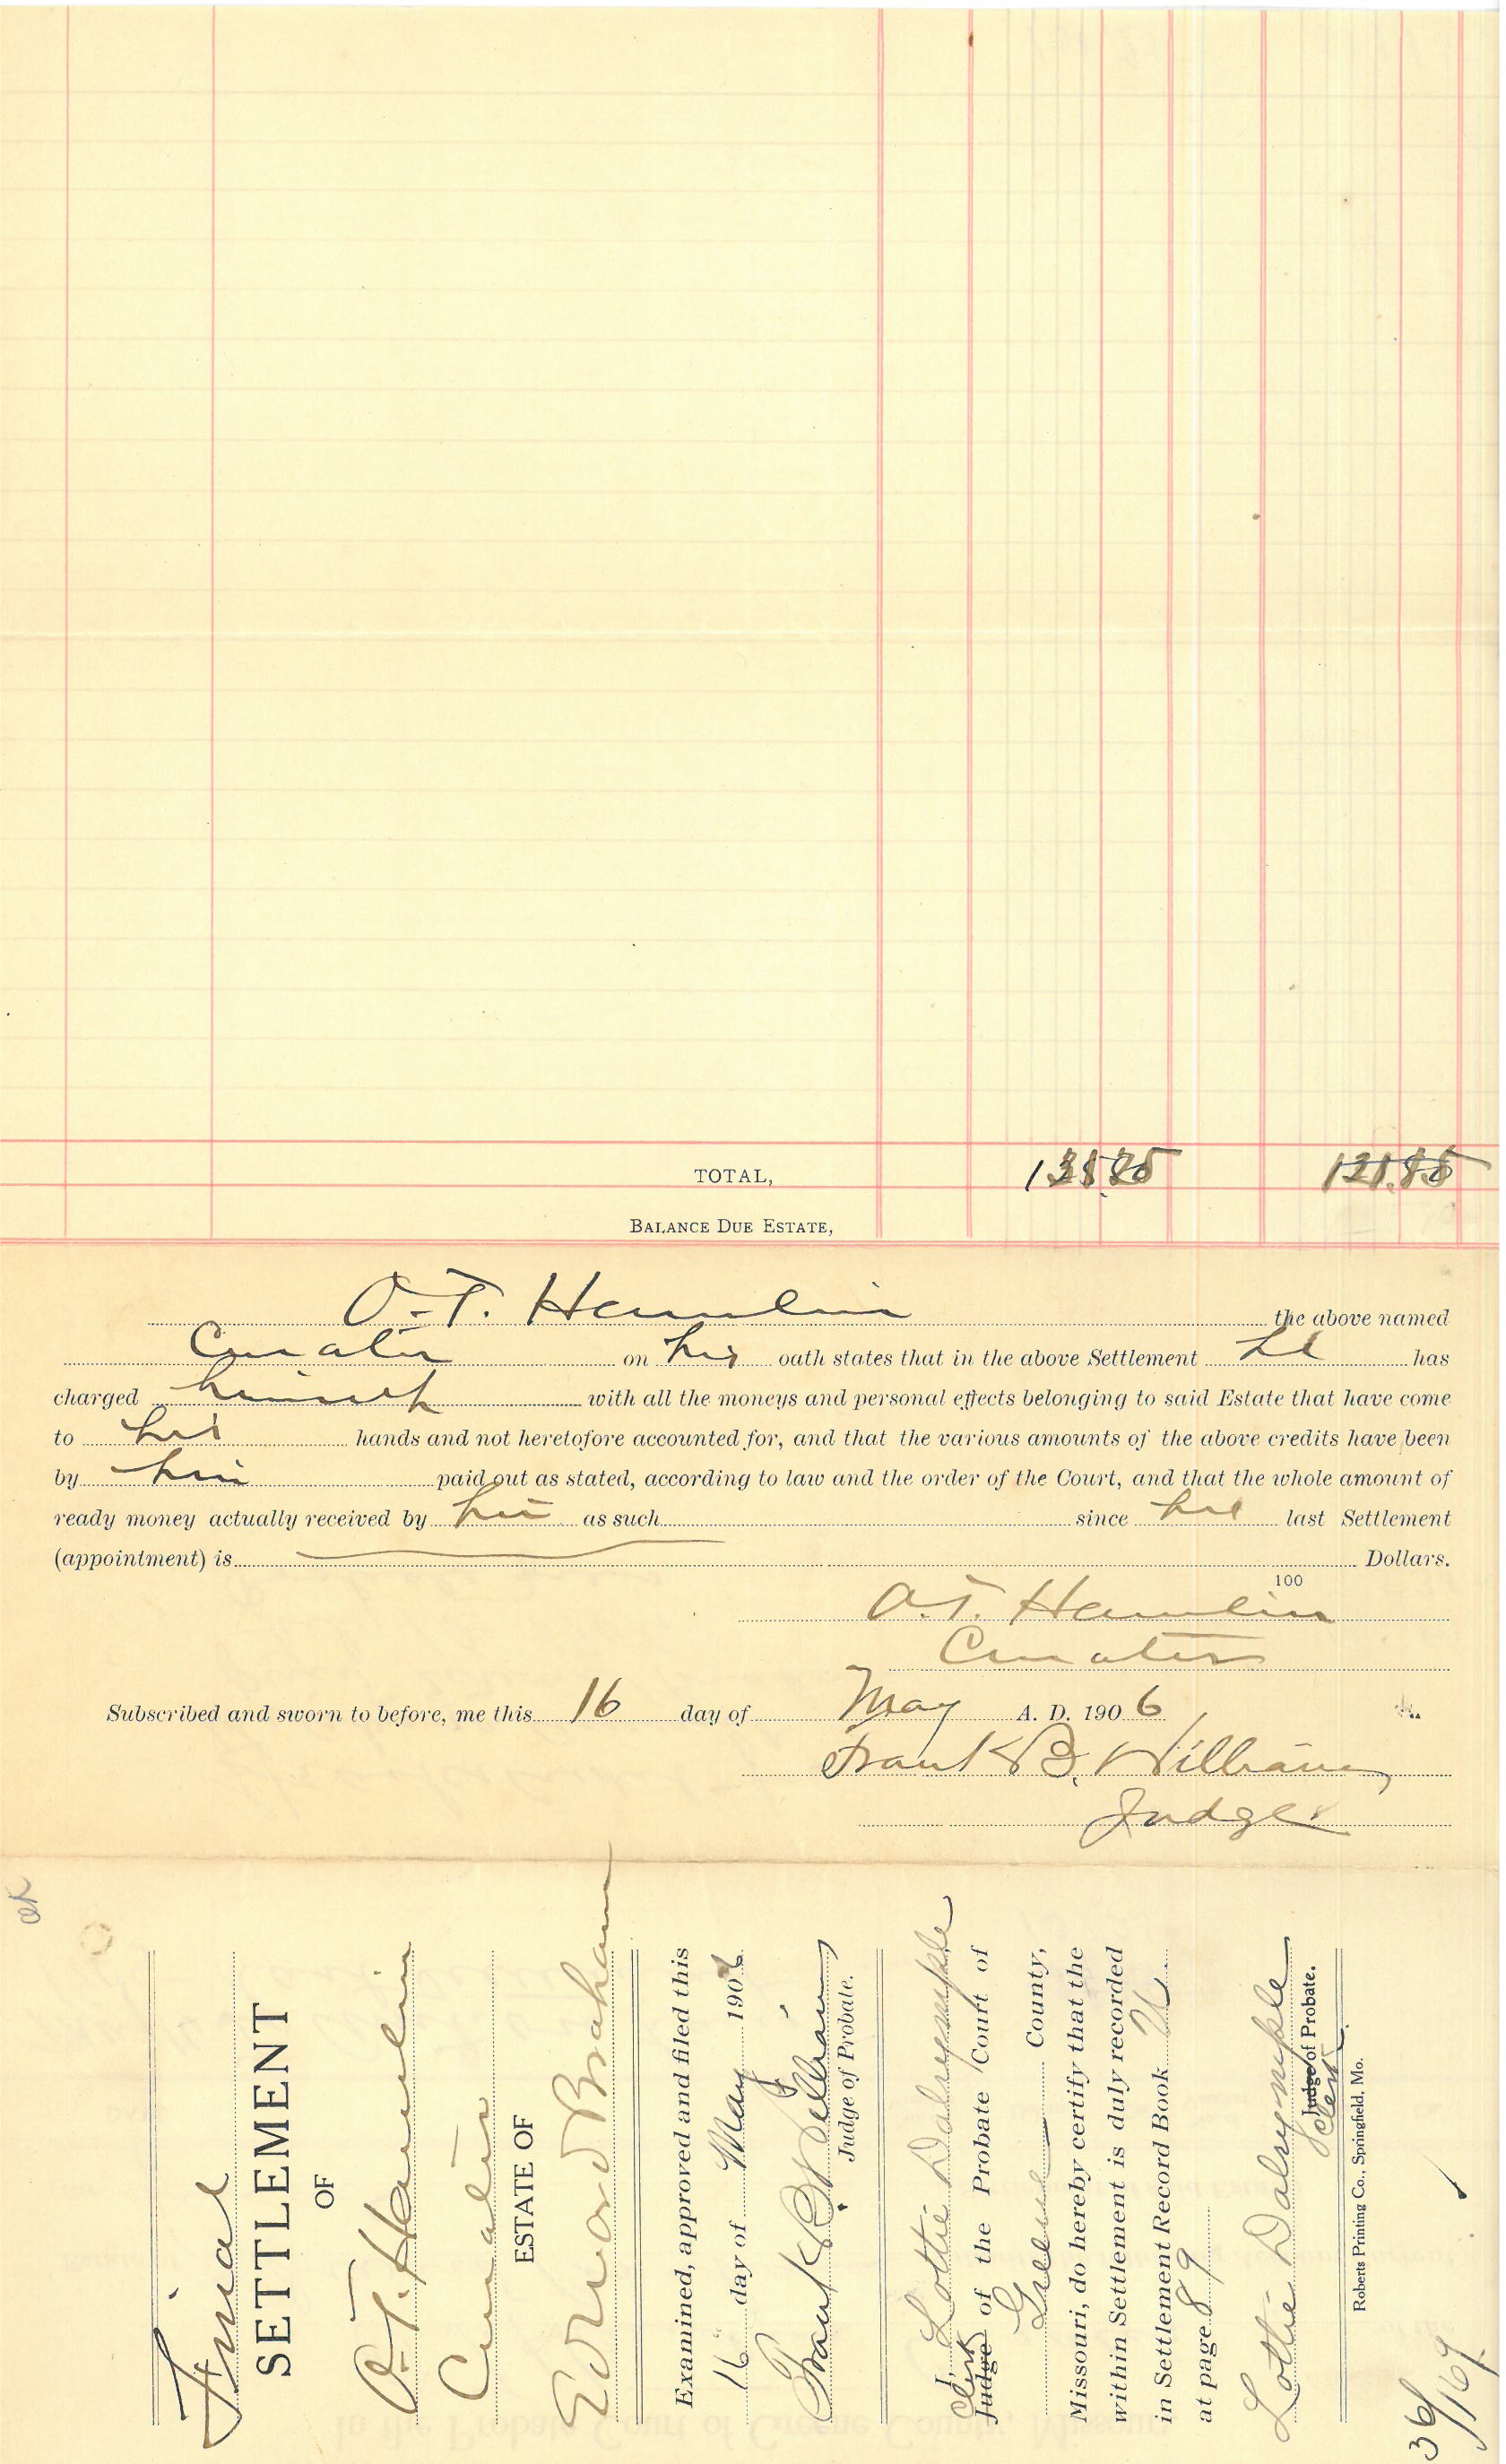 TOTAL,
BALANCE DUE ESTATE,
O.T. Hamlin the above named
Curator on his oath states that in the above Settlement he has
charged himself with all the moneys and personal effects belonging to said Estate that have come
to his hands and not heretofore accounted for, and that the various amounts of the above credits have been
by him paid out as stated, according to law and the order of the Court, and that the whole amount of
ready money actually received by him as such since his last Settlement
(appointment) is Dollars.
100
O.T. Hamlin
Curator
Subscribed and sworn to before, me this 16 day of May A. D. 1906
Frank B. Williams
Judge.
OK
Final
SETTLEMENT
OF
O.T. Hamlin
Curator
ESTATE OF
Edward Braham
Examined, approved and filed this
16 day of May 1906
Frank B. Williams
Judge of Probate.
I, Lottie Dalrymple
Clerk
Judge of the Probate Court of
Greene County,
Missouri, do hereby certify that the
within Settlement is duly recorded
in Settlement Record Book U
at page 89
Lottie Dalrymple
Judge of Probate.
Clerk
Roberts Printing Co., Springfield, Mo.
36/169